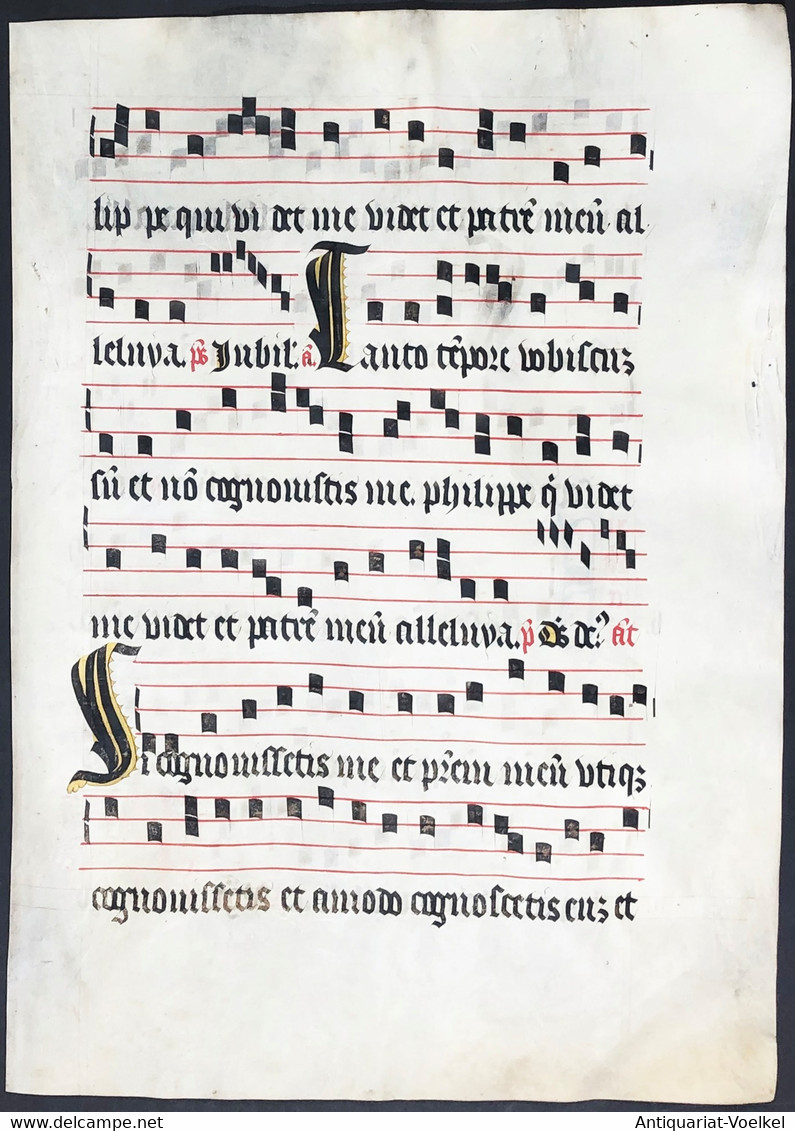 lip pe qui vi det me videt et patrē meū al
leluya. ps Jubil'. añ. Tanto tēpore vobiscuꝫ
sū et nō cognouistis me. philippe q̇ videt
me videt et patrē meū alleluya. p̄ Ds̄ de.⁹ añt
Si cognouissetis me et pr̄em meū vtiqꝫ
cognouissetis et amodo cognoscetis euꝫ et
Antiquariat-Voelkel